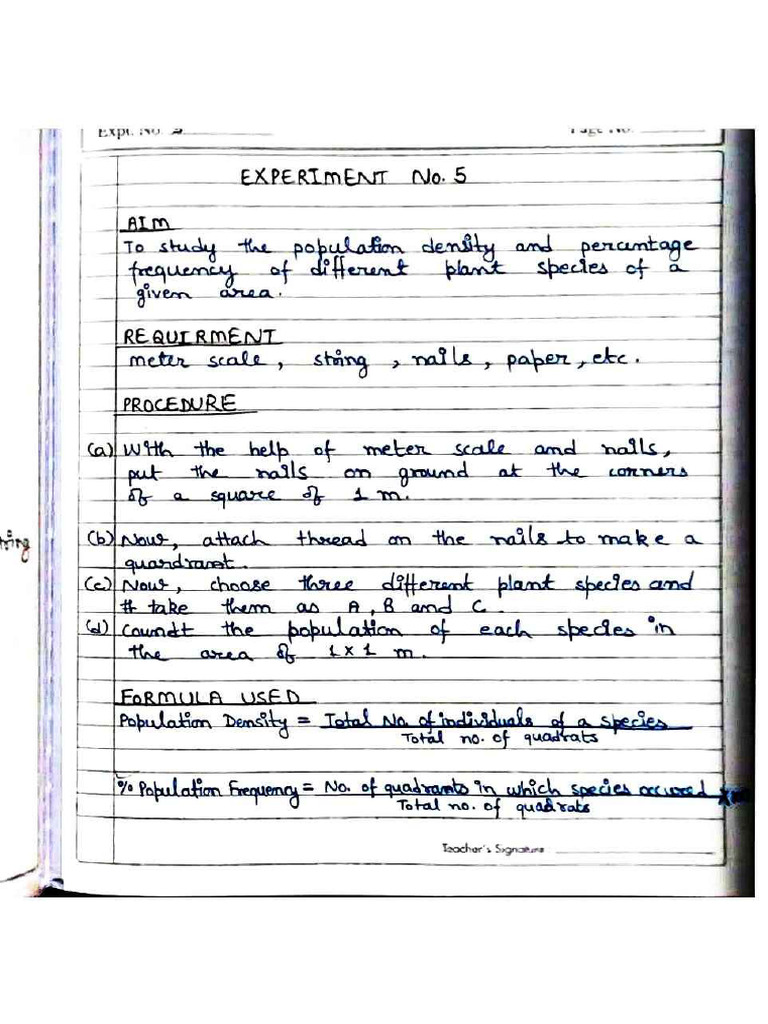 Expt. No. 5
Page No.
EXPERIMENT No. 5
AIM
To study the population density and percentage
frequency of different plant species of a
given area.
REQUIRMENT
meter scale, string, nails, paper, etc.
PROCEDURE
(a) With the help of meter scale and nails,
put the nails on ground at the corners
of a square of 1 m.
(b) Now, attach thread on the nails to make a
quardrant.
(c) Now, choose three different plant species and
take them as A, B and C.
(d) Coundt the population of each species in
the area of 1 x 1 m.
FORMULA USED
Population Density = Total No. of individuals of a species
Total no. of quadrats
% Population Frequency = No. of quadrants in which species occured
Total no. of quadrats
Teacher's Signature